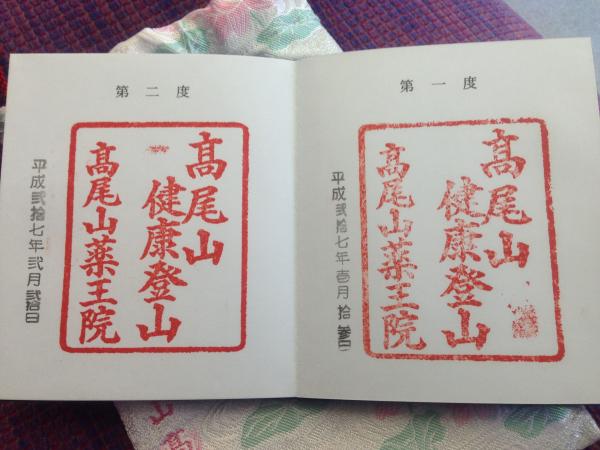 第一度
髙尾山
健康登山
髙尾山薬王院
平成弐拾七年壱月拾参日
第二度
髙尾山
健康登山
髙尾山薬王院
平成弐拾七年弐月弐拾日